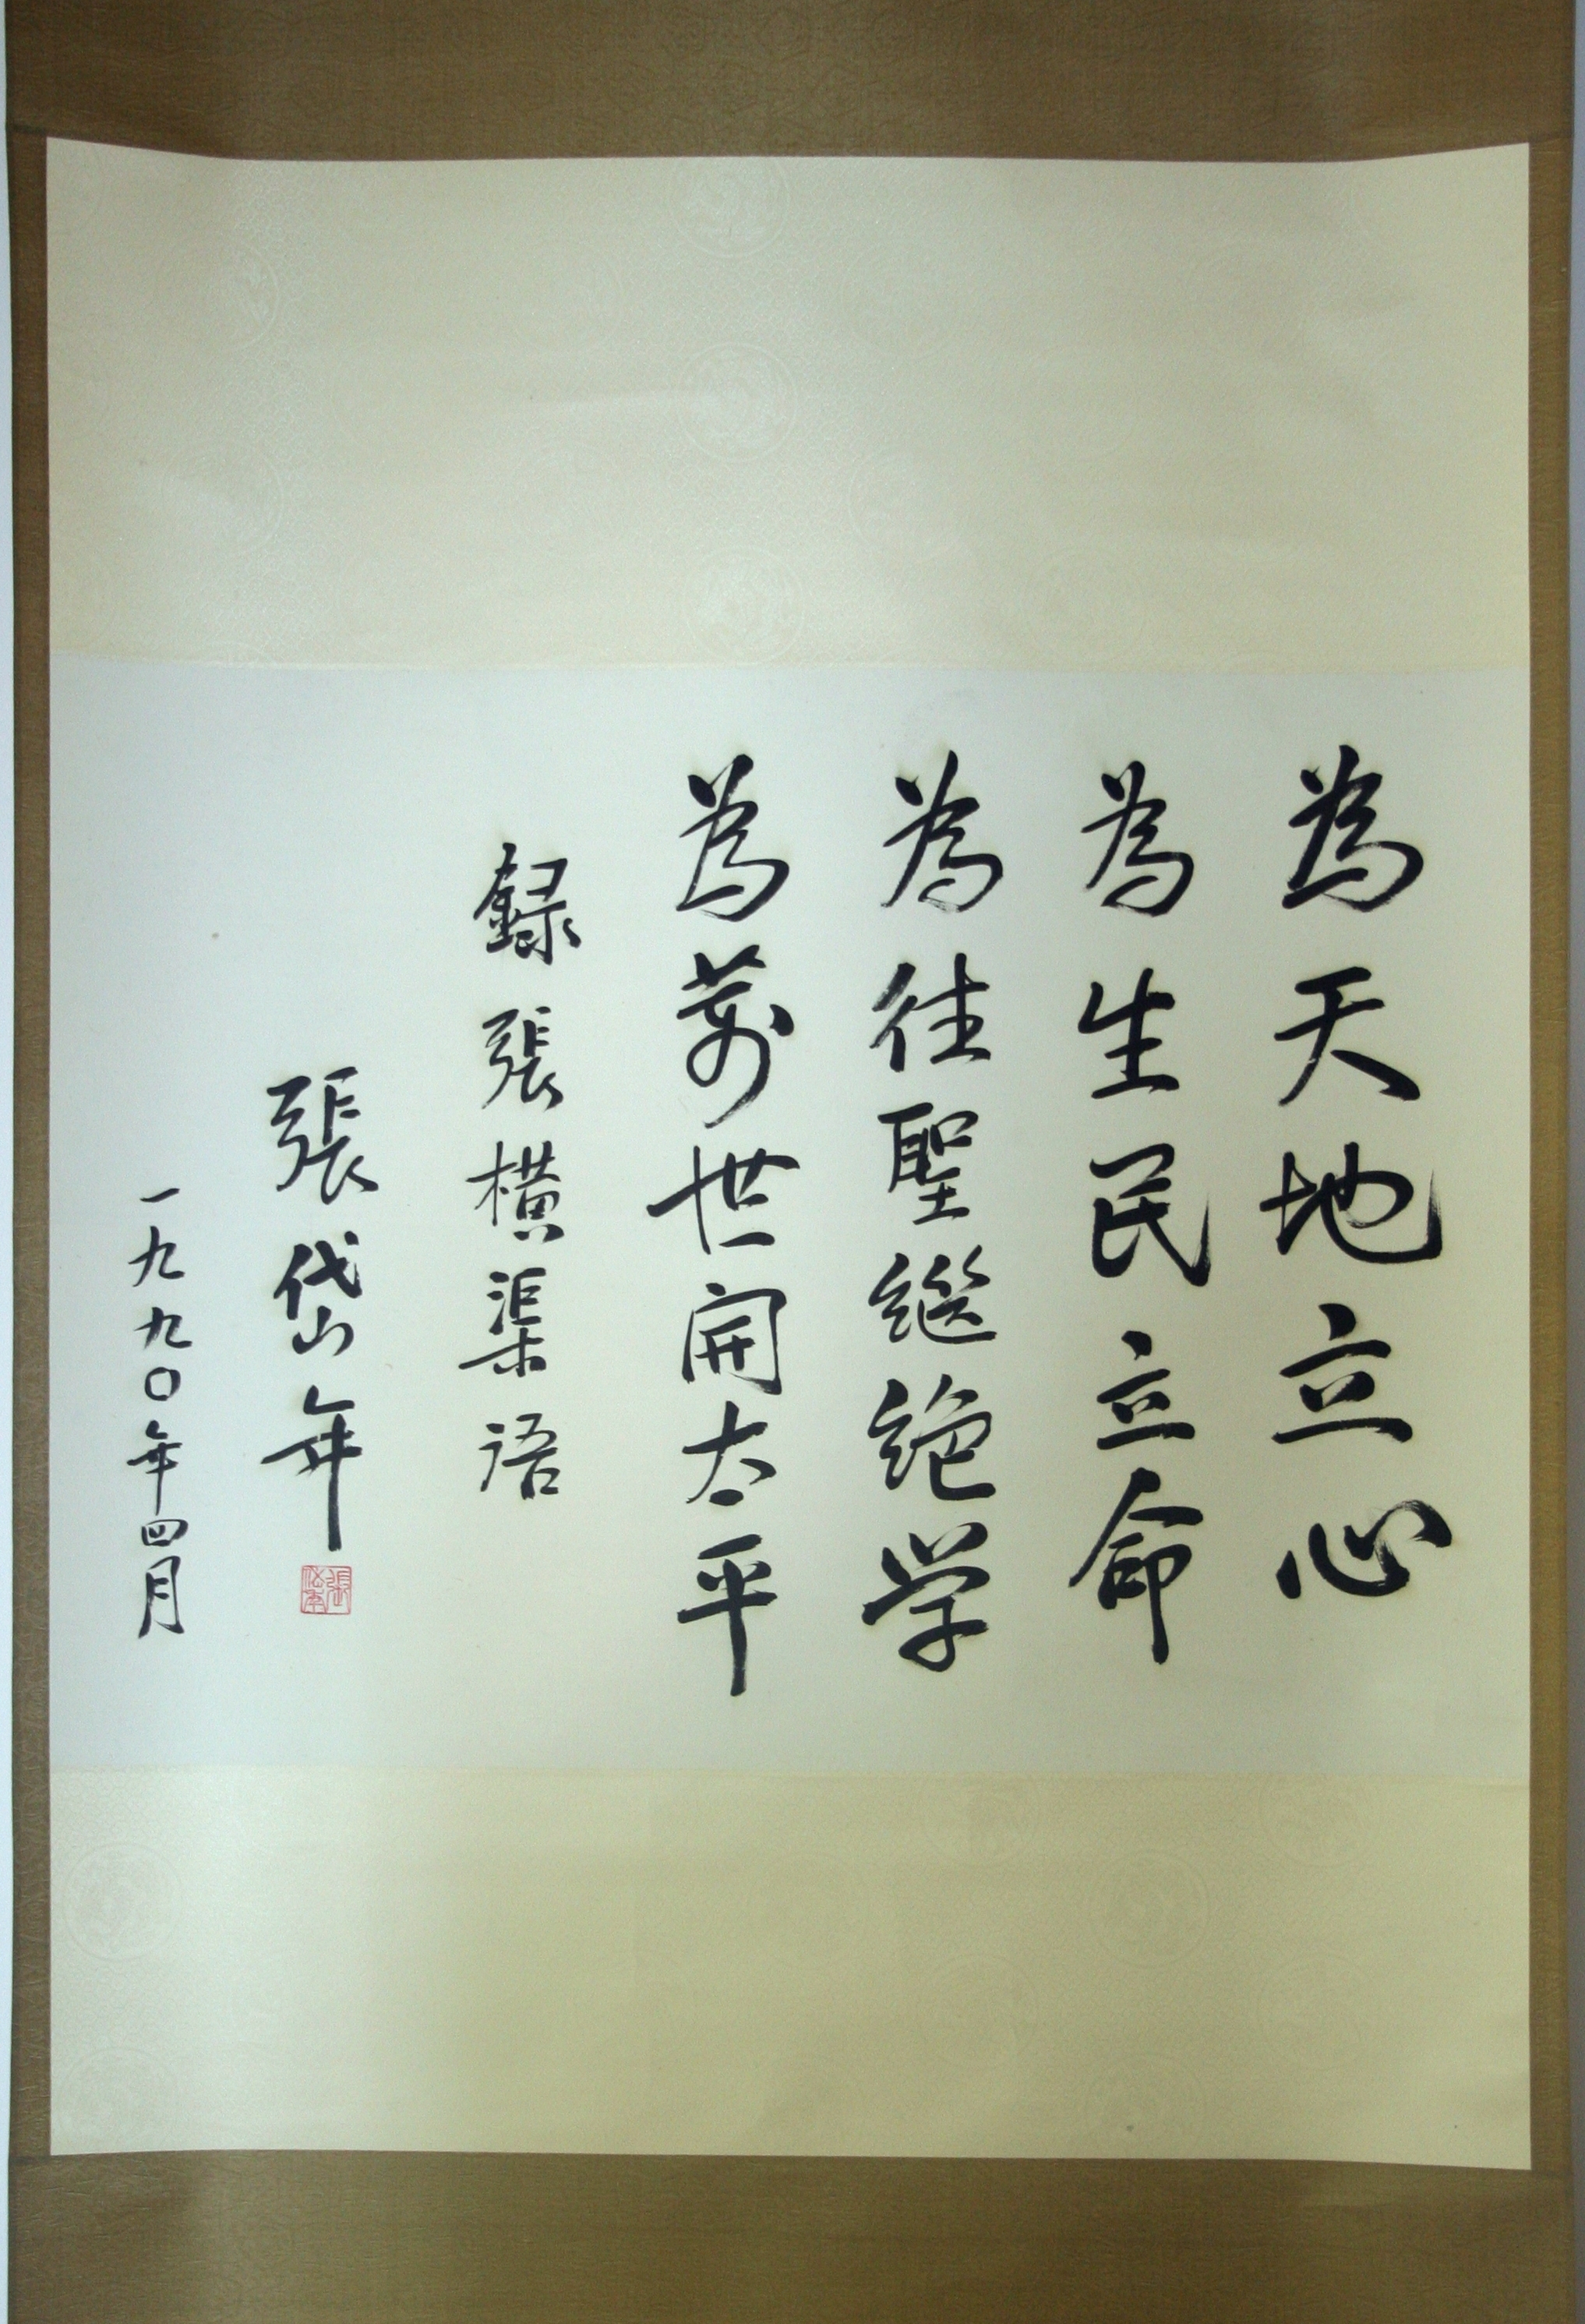 為天地立心
為生民立命
為往聖繼絕学
為萬世開太平
録張橫渠语
張岱年
一九九〇年四月